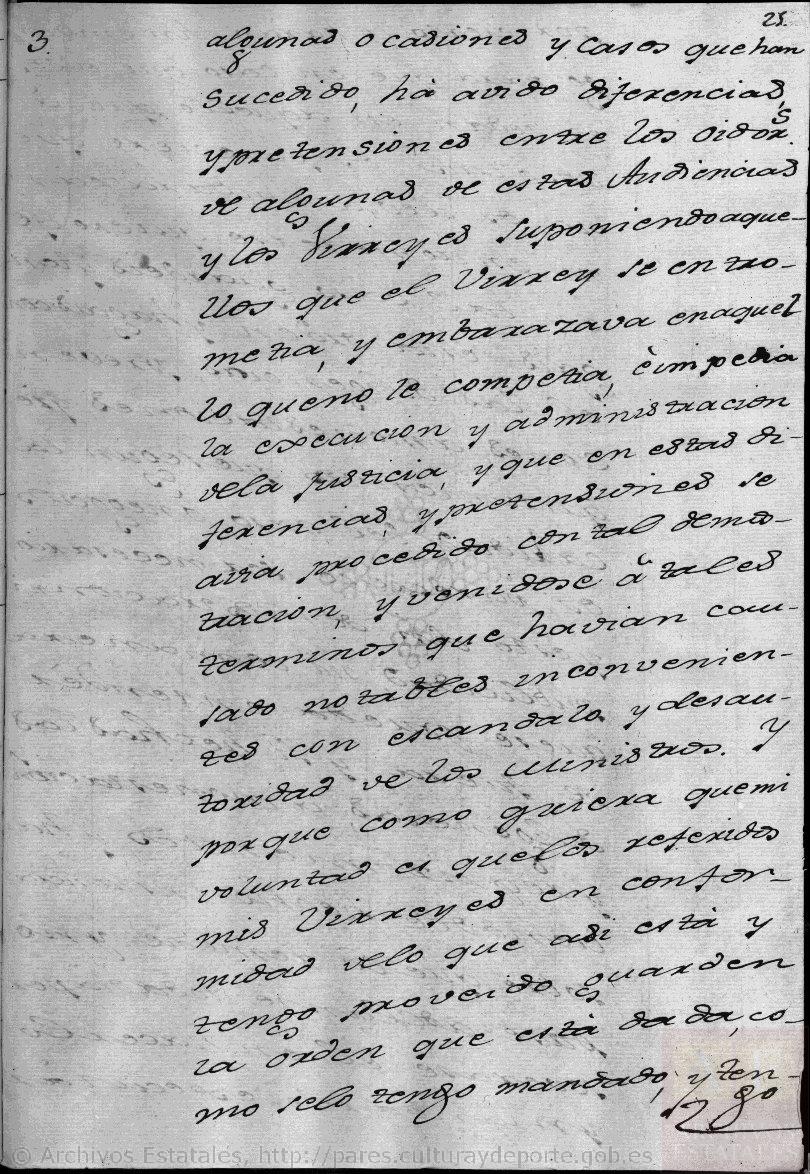 25.
3.
algunas ocasiones y casos que han
sucedido, há avido diferencias,
y pretensiones entre los oidors.
de algunas de estas Audiencias
y los Virreyes suponiendo aque-
llos que el Virrey se entro-
metia, y embarazava en aquel
lo que no le competia, è impedia
la execucion y administracion
de la justicia, y que en estas di-
ferencias, y pretensiones se
avia procedido con tal demos-
tracion, y venidose à tales
terminos que havian cau-
sado notables inconvenien-
tes con escandalo y desau-
toridad de los Ministros. Y
porque como quiera que mi
voluntad es que los referidos
mis Virreyes en confor-
midad de lo que asi està y
tengo proveido guarden
la orden que està dada, co-
mo selo tengo mandado, y ten-
go
© Archivos Estatales, http://pares.culturaydeporte.gob.es